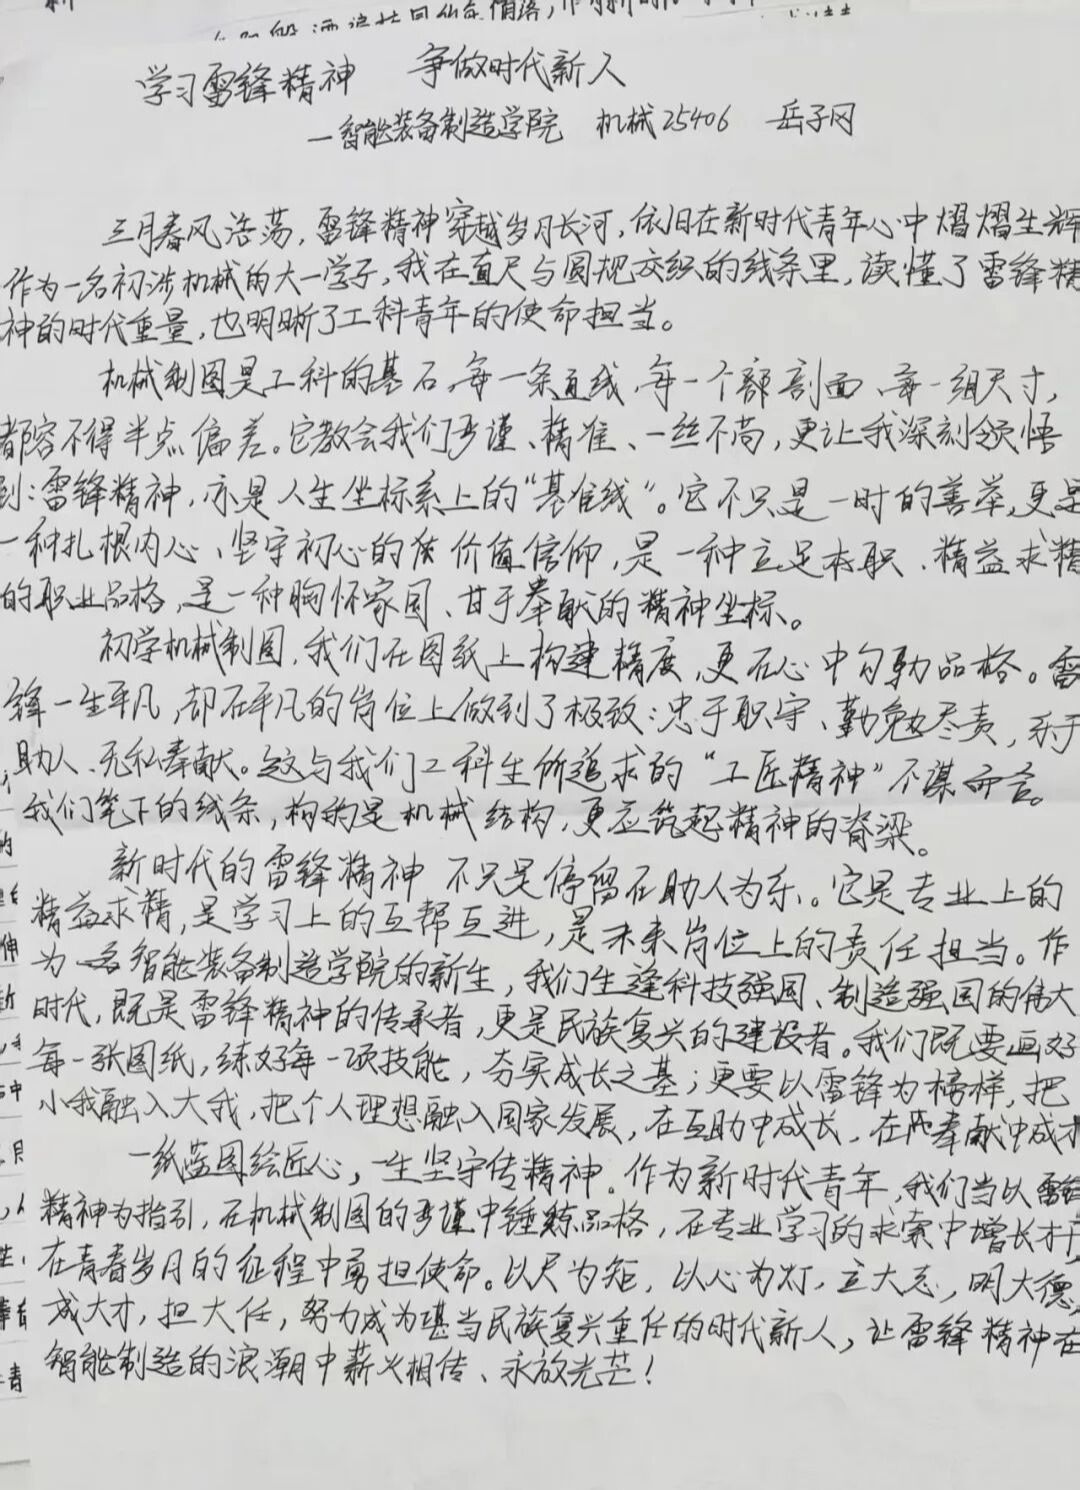 学习雷锋精神 争做时代新人
—智能装备制造学院 机械25406 岳子网
三月春风浩荡,雷锋精神穿越岁月长河,依旧在新时代青年心中熠熠生辉
作为一名初涉机械的大一学子,我在直尺与圆规交织的线条里,读懂了雷锋精
神的时代重量,也明晰了工科青年的使命担当。
机械制图是工科的基石,每一条直线、每一个部剖面、每一组尺寸,
都容不得半点偏差。它教会我们严谨、精准、一丝不苟,更让我深刻领悟
到:雷锋精神,亦是人生坐标系上的“基准线”。它不只是一时的善举,更是
一种扎根内心、坚守初心的价值信仰,是一种立足本职、精益求精
的职业品格,是一种胸怀家国、甘于奉献的精神坐标。
初学机械制图,我们在图纸上构建精度,更在心中勾勒品格。雷
锋一生平凡,却在平凡的岗位上做到了极致:忠于职守、勤勉尽责,乐于
助人、无私奉献。这与我们工科生所追求的“工匠精神”不谋而合。
我们笔下的线条,构的是机械结构,更应筑起精神的脊梁。
新时代的雷锋精神 不只是停留在助人为乐。它是专业上的
精益求精,是学习上的互帮互进,是未来岗位上的责任担当。作
为一名智能装备制造学院的新生,我们生逢科技强国、制造强国的伟大
时代,既是雷锋精神的传承者,更是民族复兴的建设者。我们既要画好
每一张图纸,练好每一项技能,夯实成长之基;更要以雷锋为榜样,把
小我融入大我,把个人理想融入国家发展,在互助中成长,在奉献中成才
一纸蓝图绘匠心,一生坚守传精神。作为新时代青年,我们当以雷锋
精神为指引,在机械制图的严谨中锤炼品格,在专业学习的求索中增长才干,
在青春岁月的征程中勇担使命。以尺为矩,以心为灯,立大志,明大德,
成大才,担大任,努力成为堪当民族复兴重任的时代新人,让雷锋精神在
智能制造的浪潮中薪火相传、永放光芒!